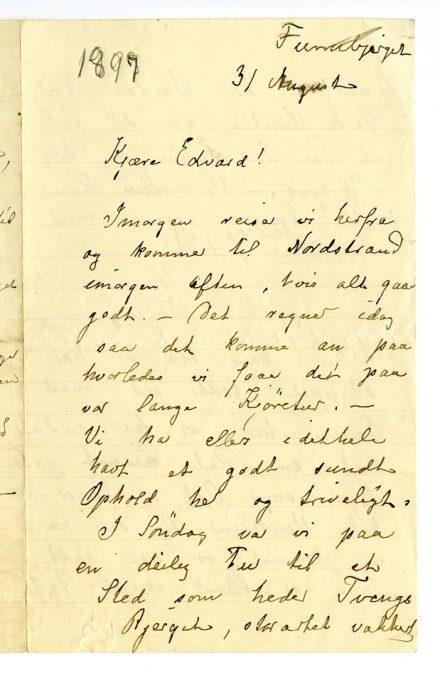 1897
31 August
Kjære Edvard!
Imorgen reise vi herfra
og komme til Nordstrand
imorgen Aften, hvis alt gaa
godt. — Det regner idag
saa det komme an paa
hvorledes vi faae det paa
vor lange Kjöretur. —
Vi ha ellers idethele
havt et godt sundt
Ophold he og triveligt.
I Söndag va vi paa
en deilig Tur til et
Sted som heder Tvengs
Bjerget, vakkert